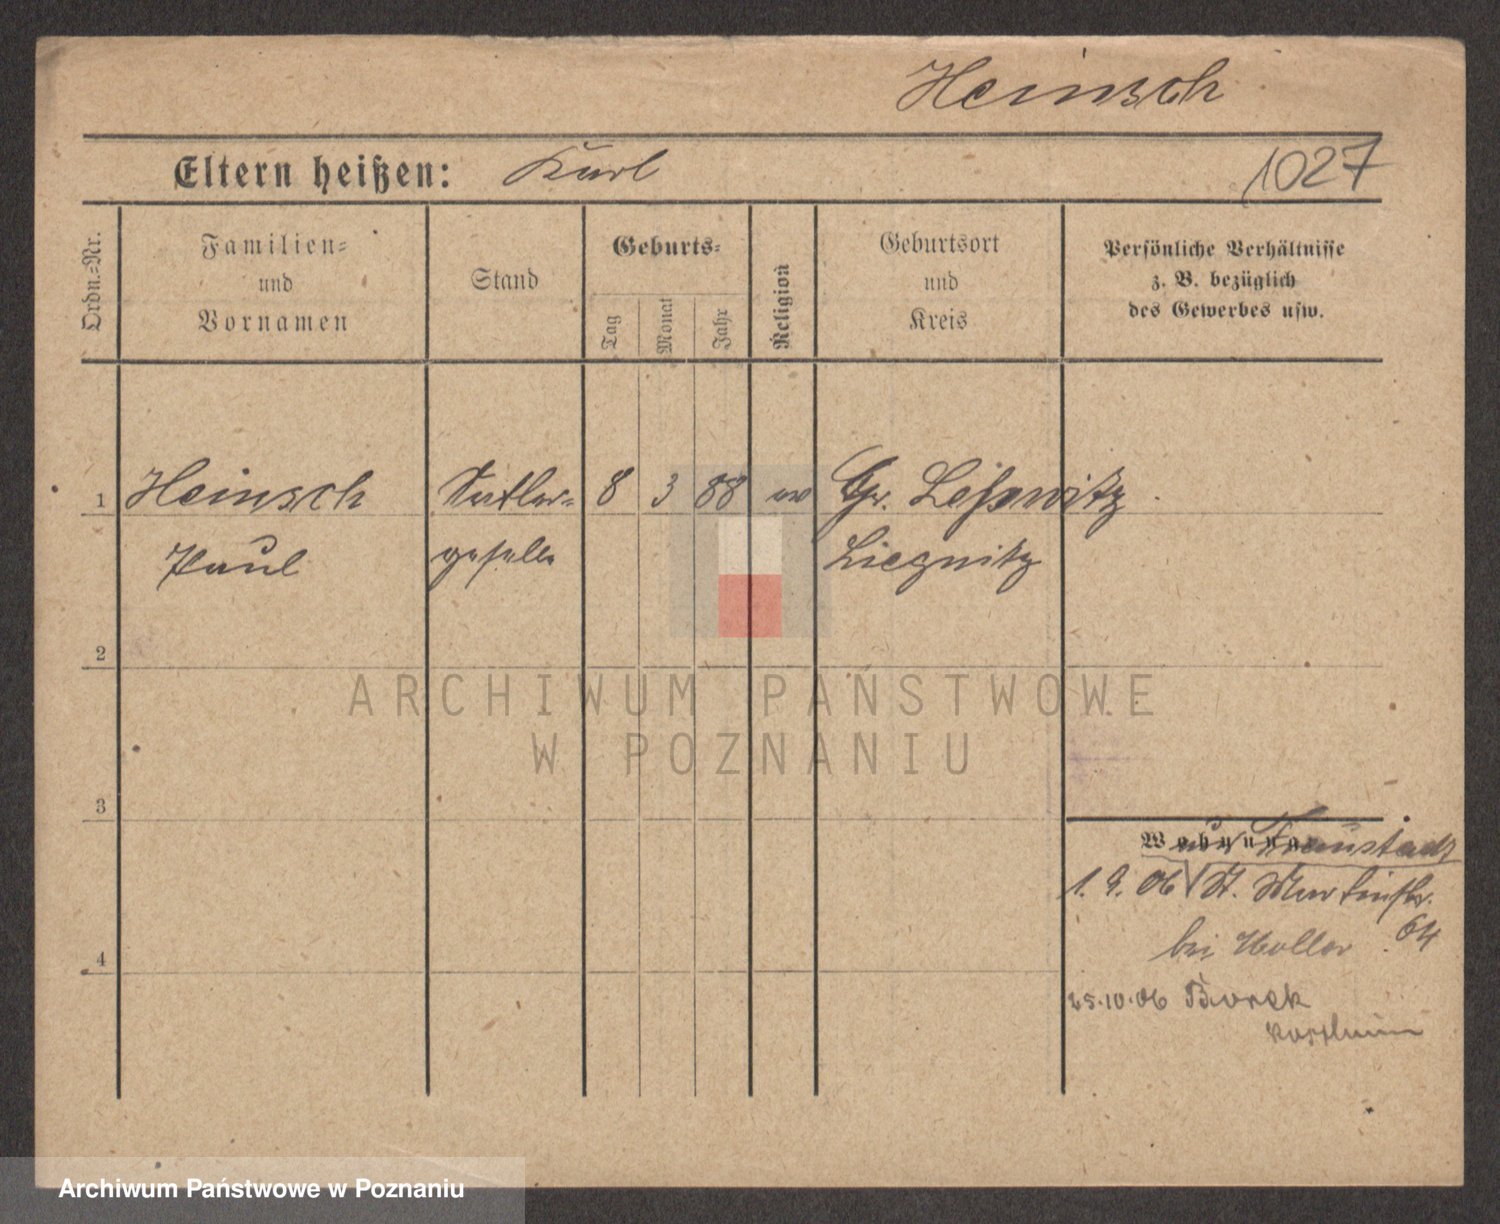 Heinsch
Eltern heißen: Karl
1027
Ordn.=Nr.
Familien=
und
Vornamen
Stand
Geburts=
Tag
Monat
Jahr
Religion
Geburtsort
und
Kreis
Persönliche Verhältnisse
z. B. bezüglich
des Gewerbes usw.
1 Heinsch Sattler= 8 3 88 ev Gr. Leßwitz
Paul geselle Liegnitz
2
3
4
Wohnung
aus Fraustadt
1. 9. 06 St. Martinstr.
64
bei Haller
25.10.06 Borek
ARCHIWUM PAŃSTWOWE
W POZNANIU
Archiwum Państwowe w Poznaniu